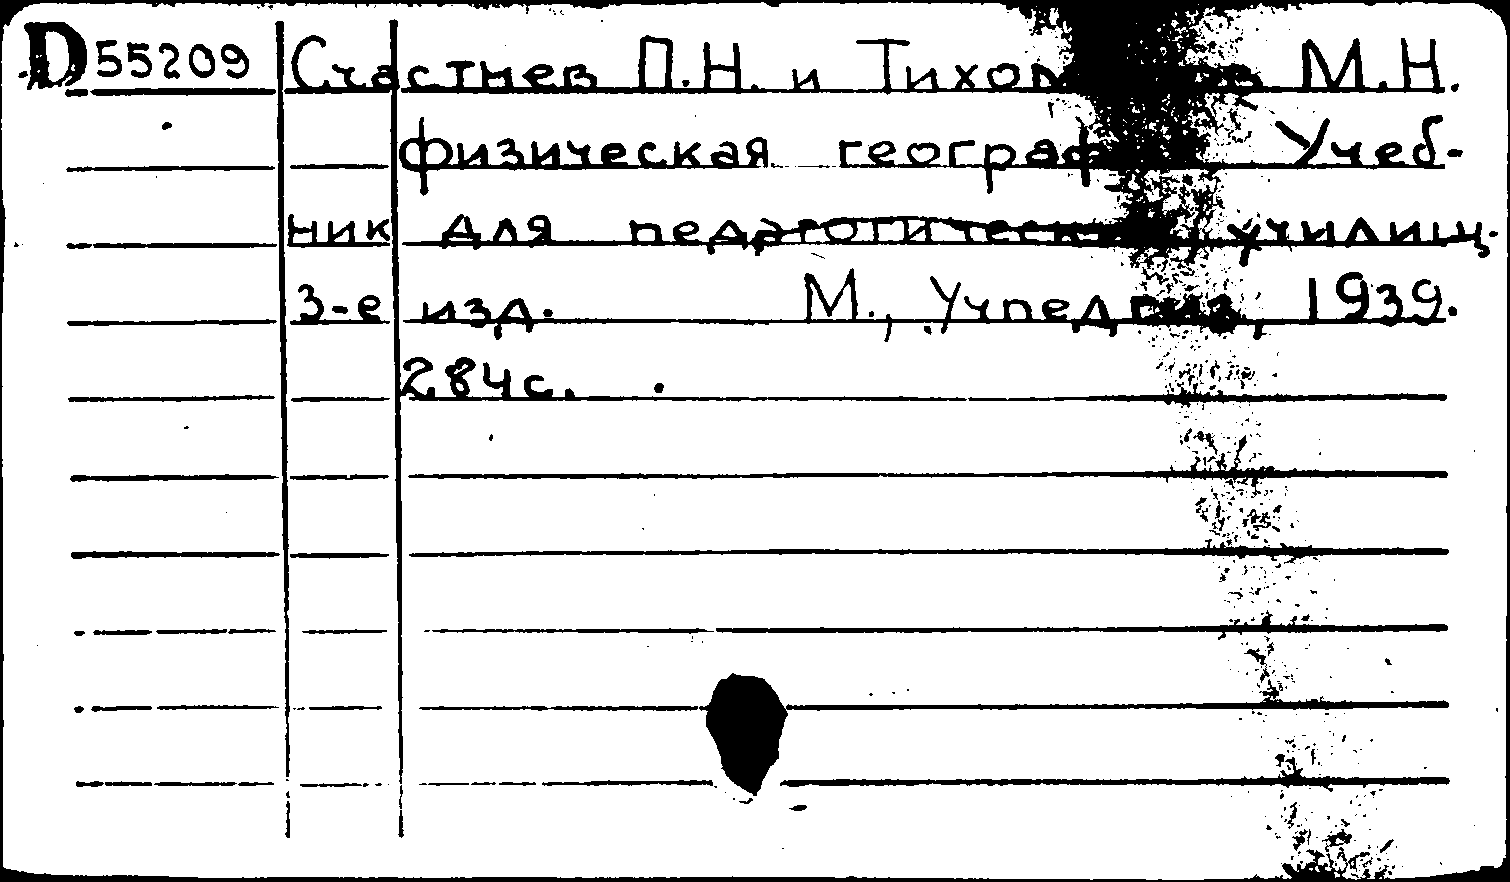 D 55209 Счастнев П.Н. и Тихомиров М.Н.
Физическая география Учеб-
ник для педагогических училищ.
3-е изд. М., Учпедгиз, 1939.
284с.